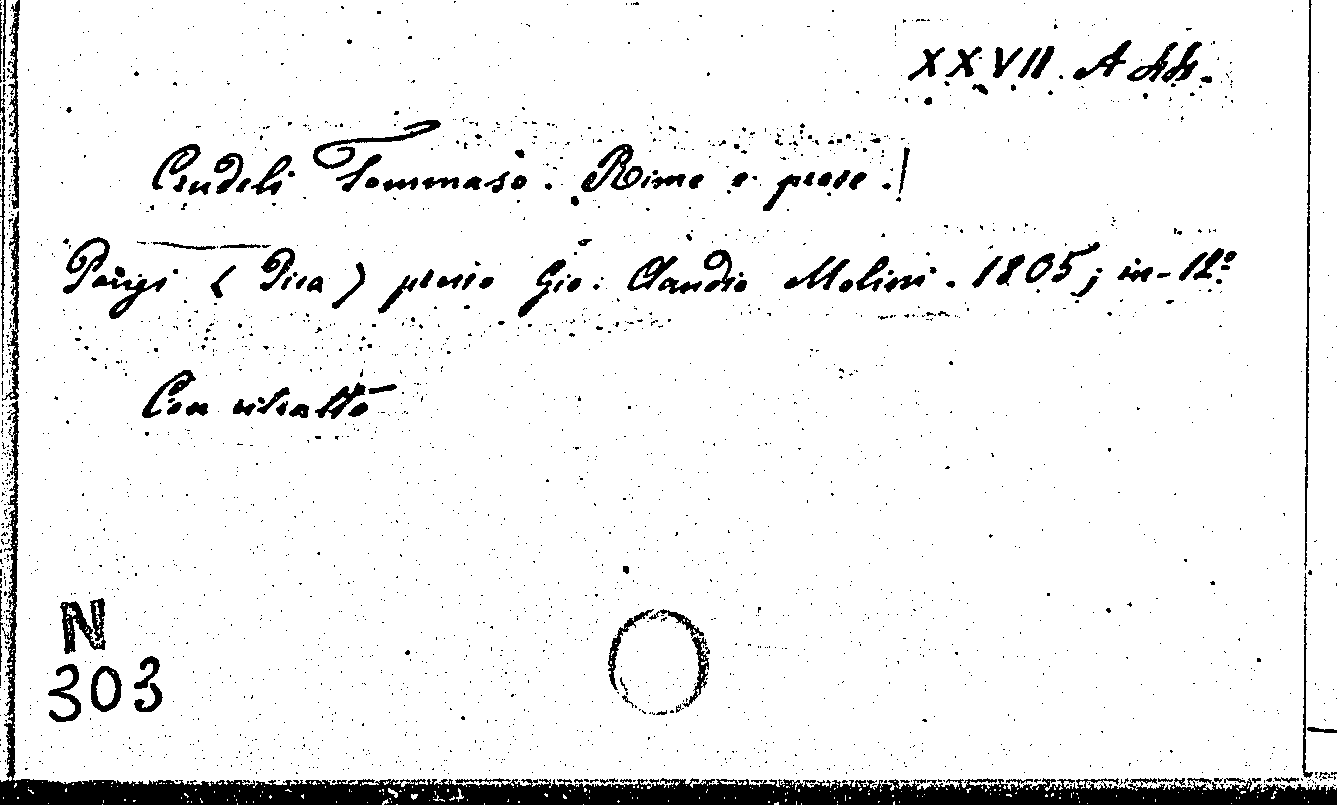 XXVII. A
Crudeli Tommaso. Rime e prose.
Parigi (Pisa) presso Gio: Claudio Molini. 1805; in-12º
Con ritratto
N
303